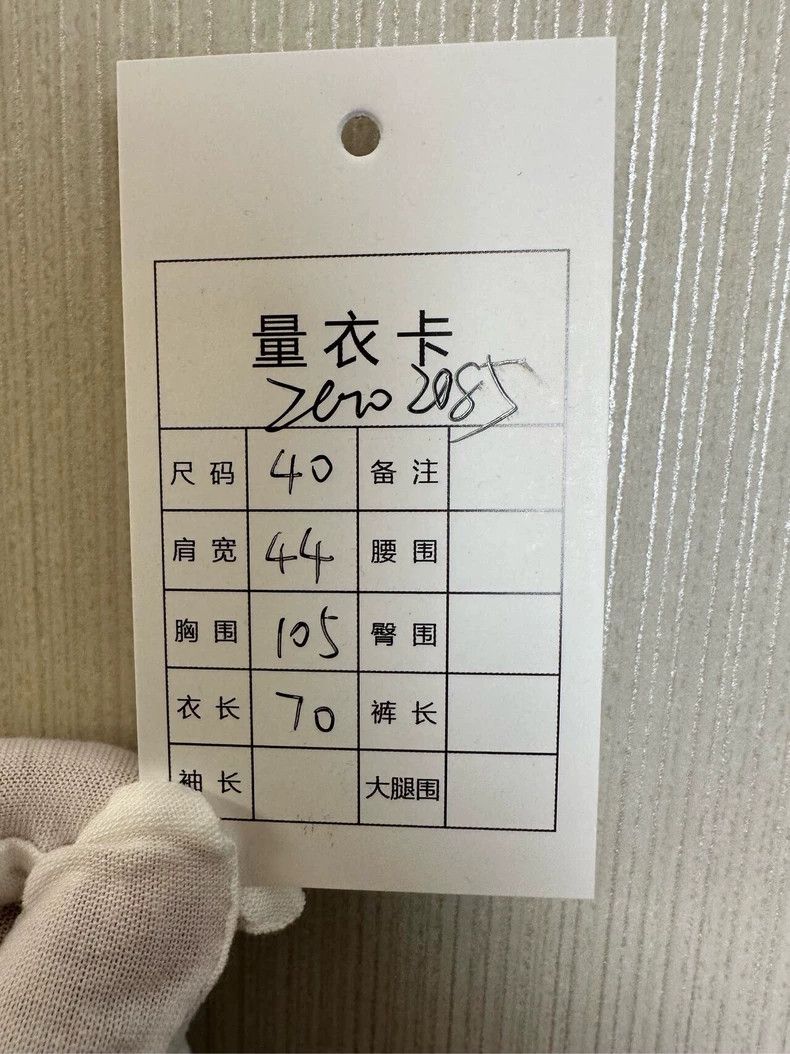 量衣卡
Zero 2085
尺码 40 备注
肩宽 44 腰围
胸围 105 臀围
衣长 70 裤长
袖长 大腿围